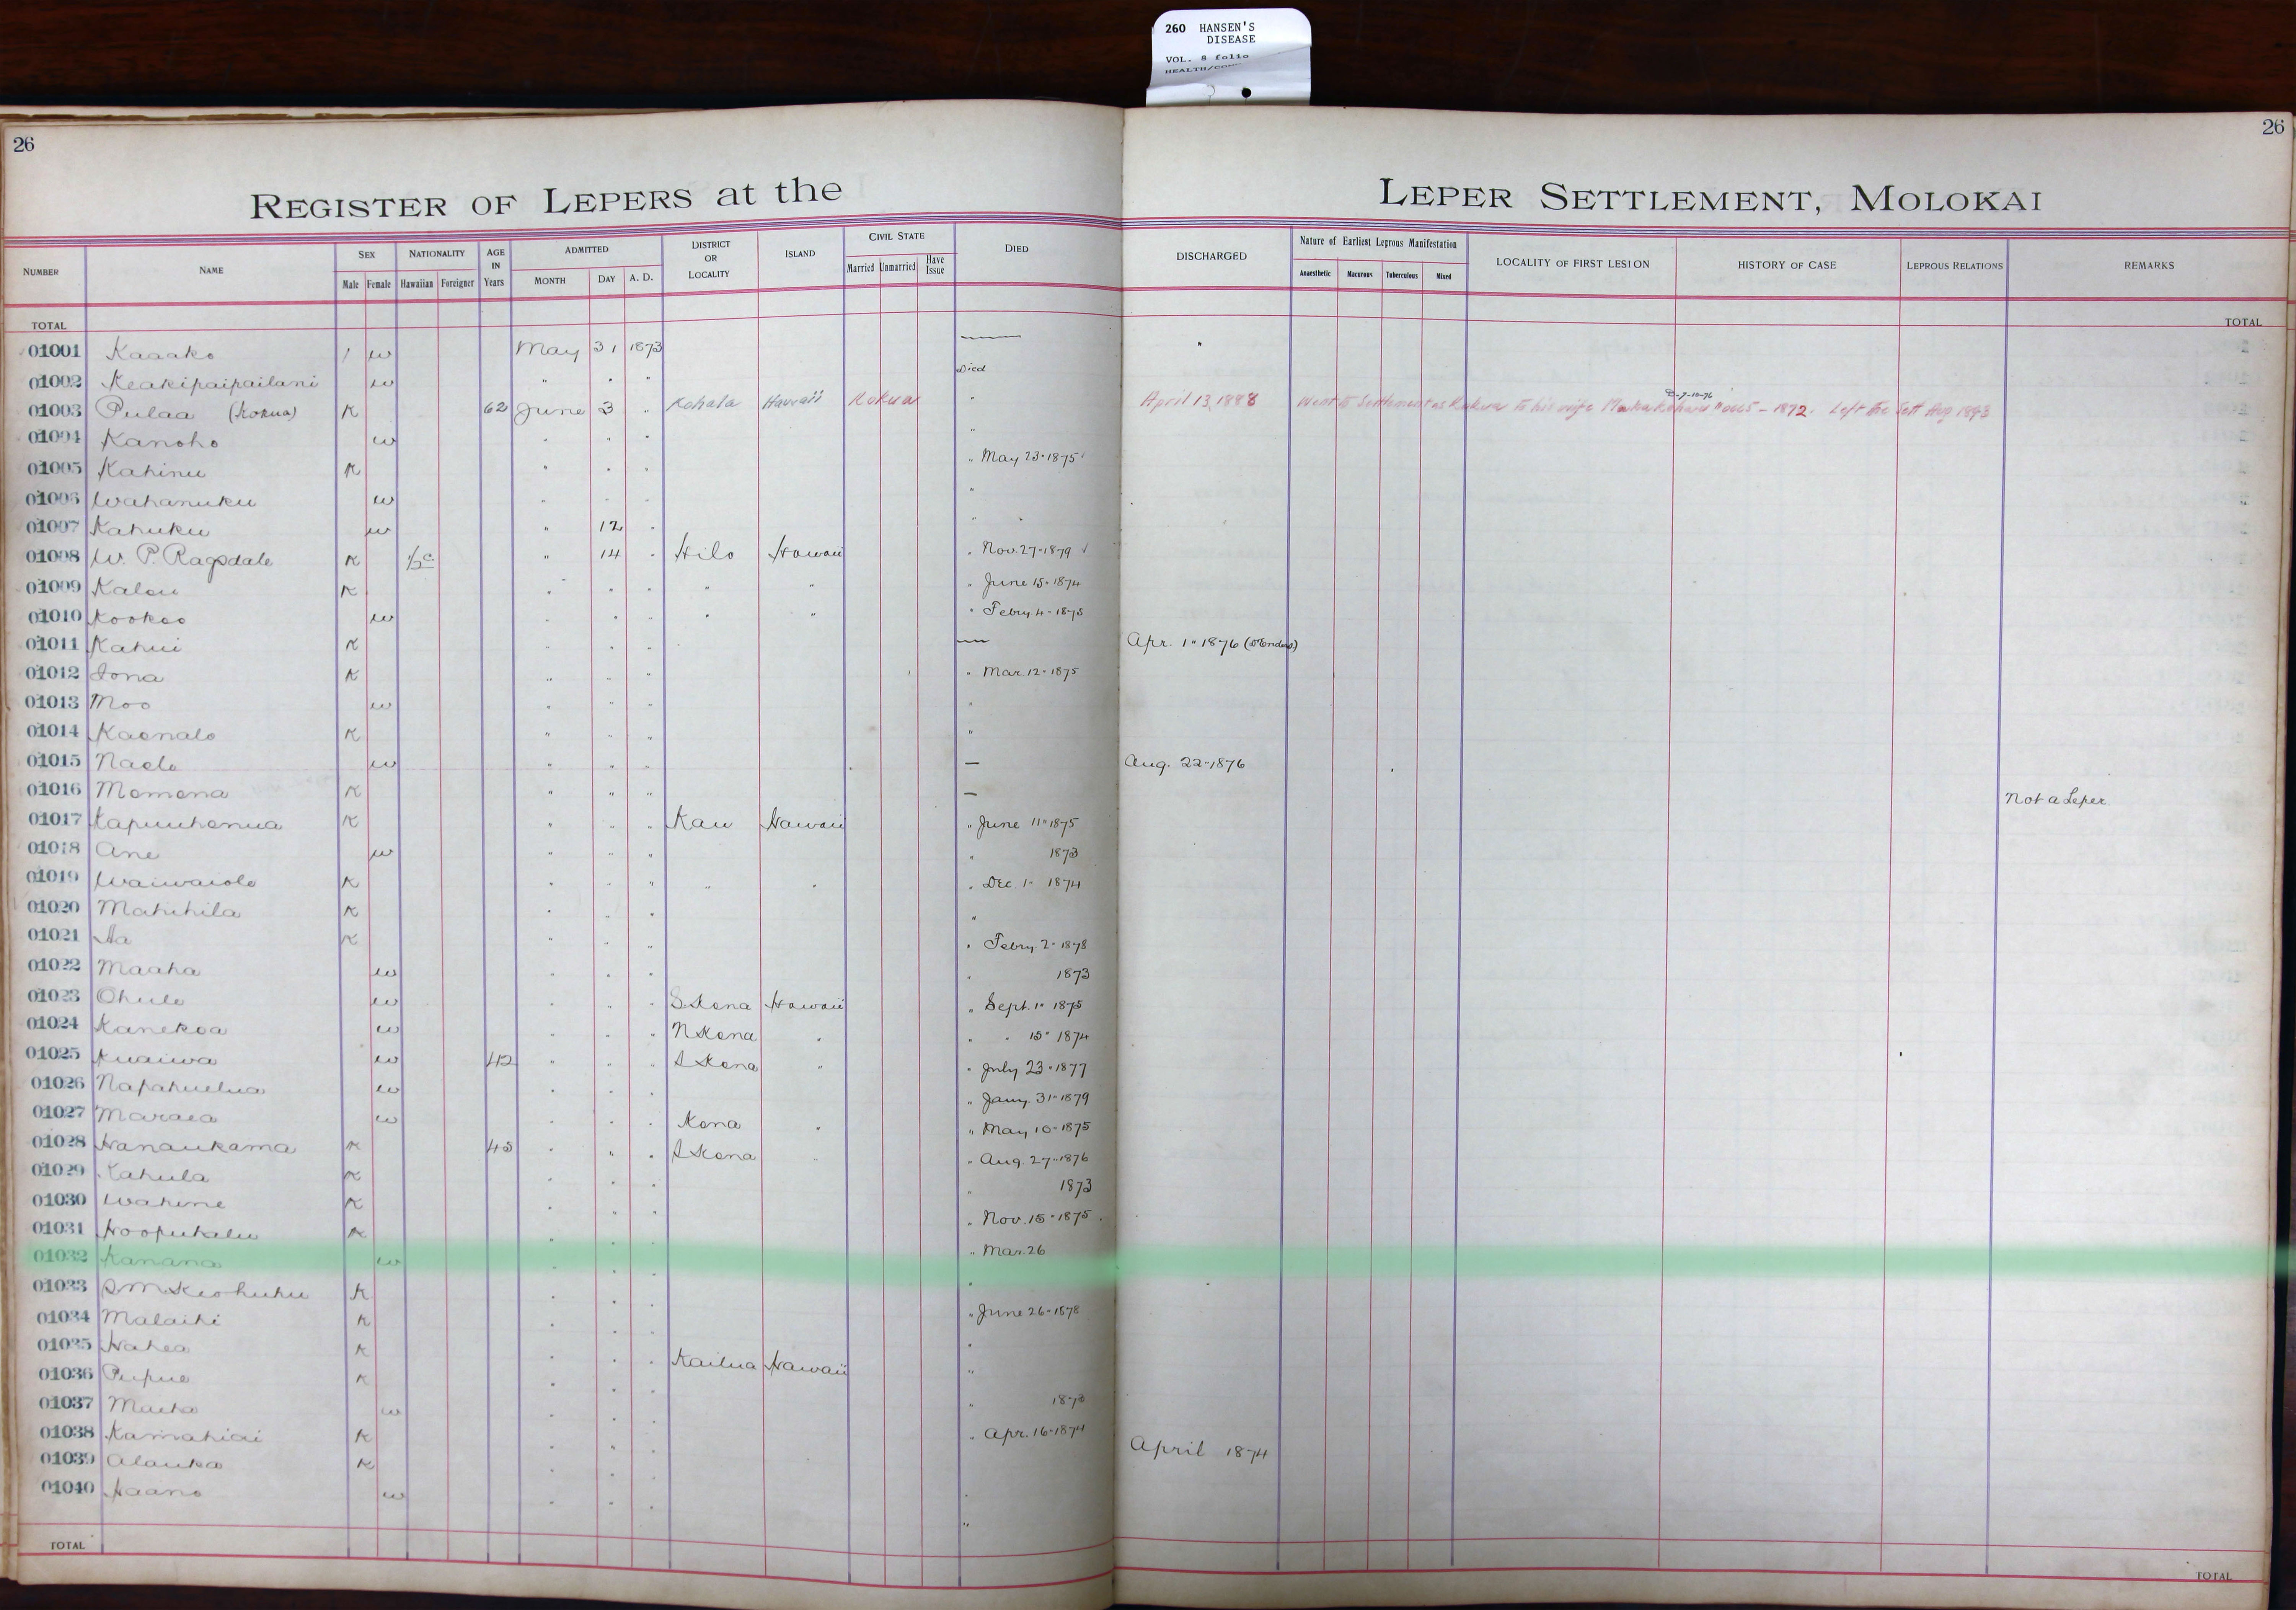 260 HANSEN'S
DISEASE
VOL. 8 folio
26
26
REGISTER OF LEPERS at the LEPER SETTLEMENT, MOLOKAI
NUMBER NAME SEX NATIONALITY AGE IN Years ADMITTED DISTRICT OR LOCALITY ISLAND CIVIL STATE DIED DISCHARGED Nature of Earliest Leprous Manifestation LOCALITY OF FIRST LESION HISTORY OF CASE LEPROUS RELATIONS REMARKS
Male Female Hawaiian Foreigner MONTH DAY A. D. Married Unmarried Have Issue Anaesthetic Macurous Tuberculous Mixed
TOTAL TOTAL
01001 Kaaako w May 31 1873 — "
01002 Keakipaipailani w " " " Died
01003 Pulaa (Kokua) K 62 June 3 " Kohala Hawaii Kokua " April 13, 1888 Went to Settlement as Kokua to his wife 1872. Left the Sett Aug 1893
01004 Kanoho w " " " "
01005 Kahinu K " " " " May 23" 1875
01006 Wahanuku w " " " "
01007 Kahuku w " 12 " "
01008 W. P. Ragsdale K 1/2 c " 14 " Hilo Hawaii " Nov. 27" 1879
01009 Kalou K " " " " " " June 15" 1874
01010 Kookoo w " " " " " " Febry. 4 - 1875
01011 Kahui K " " " — Apr. 1" 1876
01012 Iona K " " " " Mar. 12" 1875
01013 Moo w " " " "
01014 Kaonalo K " " " "
01015 Naolo w " " " — Aug. 22-1876
01016 Momona K " " " — Not a Leper
01017 Kapuuhonua K " " " Kau Hawaii " June 11" 1875
01018 Ane w " " " " 1873
01019 Waiwaiole K " " " " " " Dec. 1" 1874
01020 Mahihila K " " " "
01021 Aa K " " " " Febry. 2" 1878
01022 Maaha w " " " " 1873
01023 Ohule w " " " S. Kona Hawaii " Sept. 1" 1875
01024 Kanekoa w " " " N Kona " " " 15" 1874
01025 Kuaiwa w 42 " " " S Kona " " July 23" 1877
01026 Napahuelua w " " " " Jany. 31" 1879
01027 Maraea w " " " Kona " " May 10" 1875
01028 Hanaukama K 43 " " " S Kona " " Aug. 27" 1876
01029 Kahula K " " " " 1873
01030 Wahine K " " " " Nov. 15" 1875
01031 Hoopukalu K " " " " Mar. 26
01032 Kanana w " " " "
01033 S M Keohuhu K " " " " June 26" 1878
01034 Malaihi K " " " "
01035 Hahea K " " " Kailua Hawaii "
01036 Pupue K " " " " 1873
01037 Maeha w " " " " Apr. 16" 1874
01038 Kamahiai K " " " April 1874
01039 Alauka K " " " "
01040 Haano w " " " "
TOTAL TOTAL